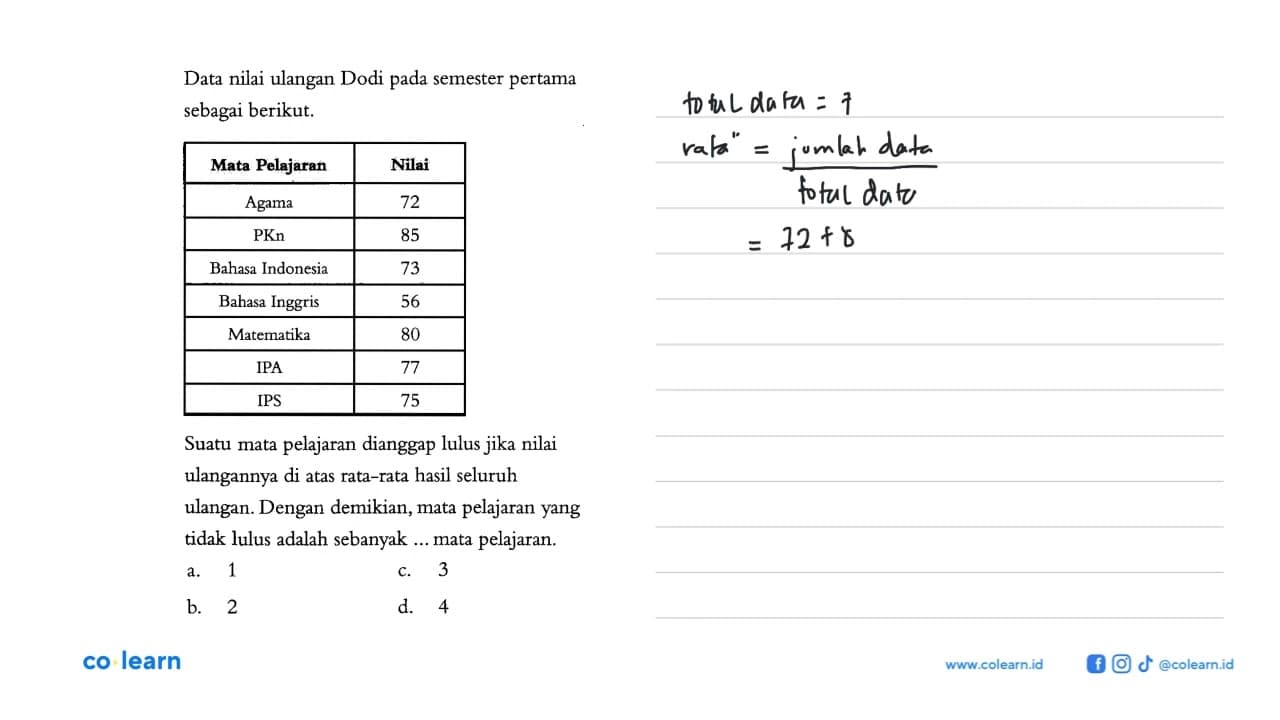 Data nilai ulangan Dodi pada semester pertama
sebagai berikut.
Mata Pelajaran Nilai
Agama 72
PKn 85
Bahasa Indonesia 73
Bahasa Inggris 56
Matematika 80
IPA 77
IPS 75
Suatu mata pelajaran dianggap lulus jika nilai
ulangannya di atas rata-rata hasil seluruh
ulangan. Dengan demikian, mata pelajaran yang
tidak lulus adalah sebanyak ... mata pelajaran.
a. 1 c. 3
b. 2 d. 4
total data = 7
rata" = jumlah data
total data
= 72 + 8
co learn
www.colearn.id
@colearn.id